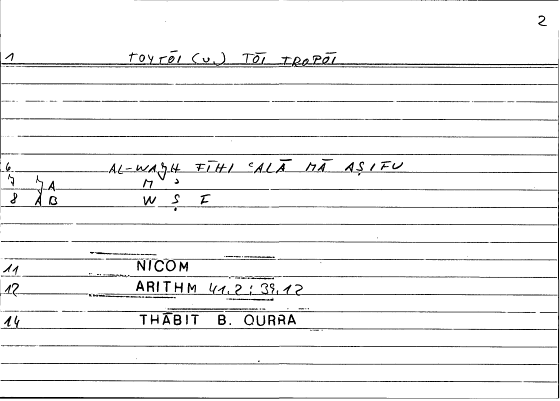 2
1 TOYTŌI (U.) TŌI TROPŌI
6 AL-WAJH FĪHI ʿALĀ MĀ AṢIFU
7 JA M ʾ
8 AB W Ṣ F
11 NICOM
12 ARITHM 41.2; 39.12
14 THĀBIT B. QURRA